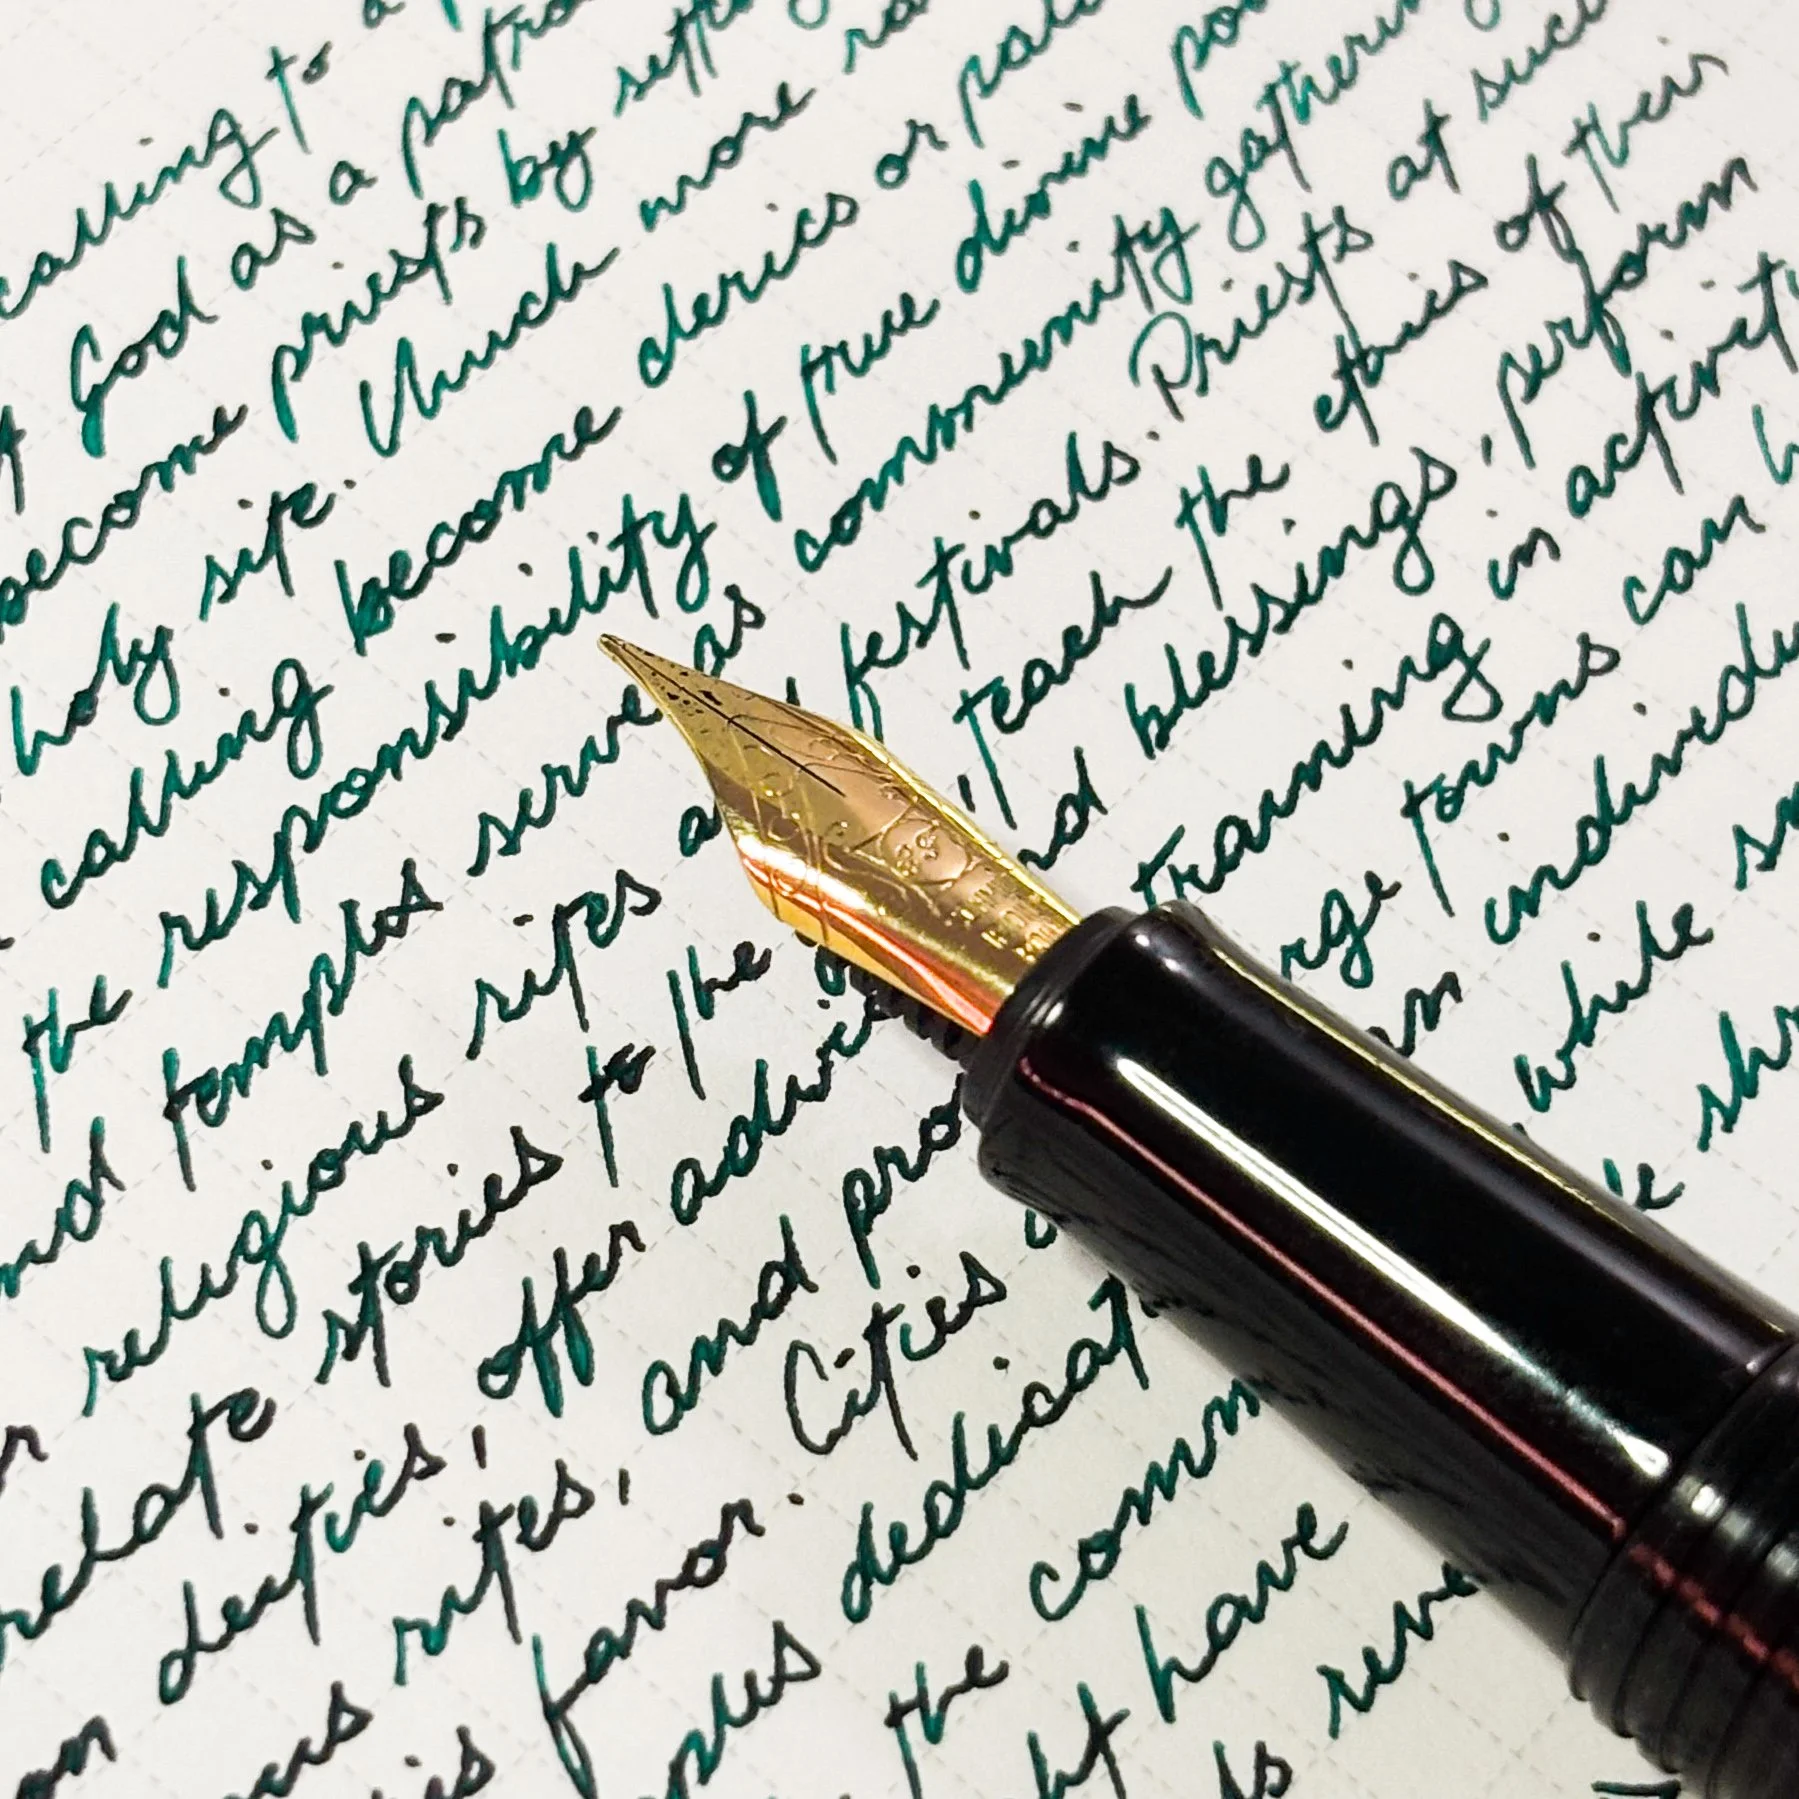 calling to a p
t God as a patro
become priests by setti
holy site. Much more ra
calling become clerics or pala
the responsibility of true divine pow
and temples serve as community gathering
or religious rites a festivals. Priests at such
relate stories to the , teach the ethics of their
on deities, offer advice nd blessings, perform
us rites, and pro training in activit
is favor. Cities rge towns can h
ples dedicat an individu
the comm while sm
ht have le shr
ls reve